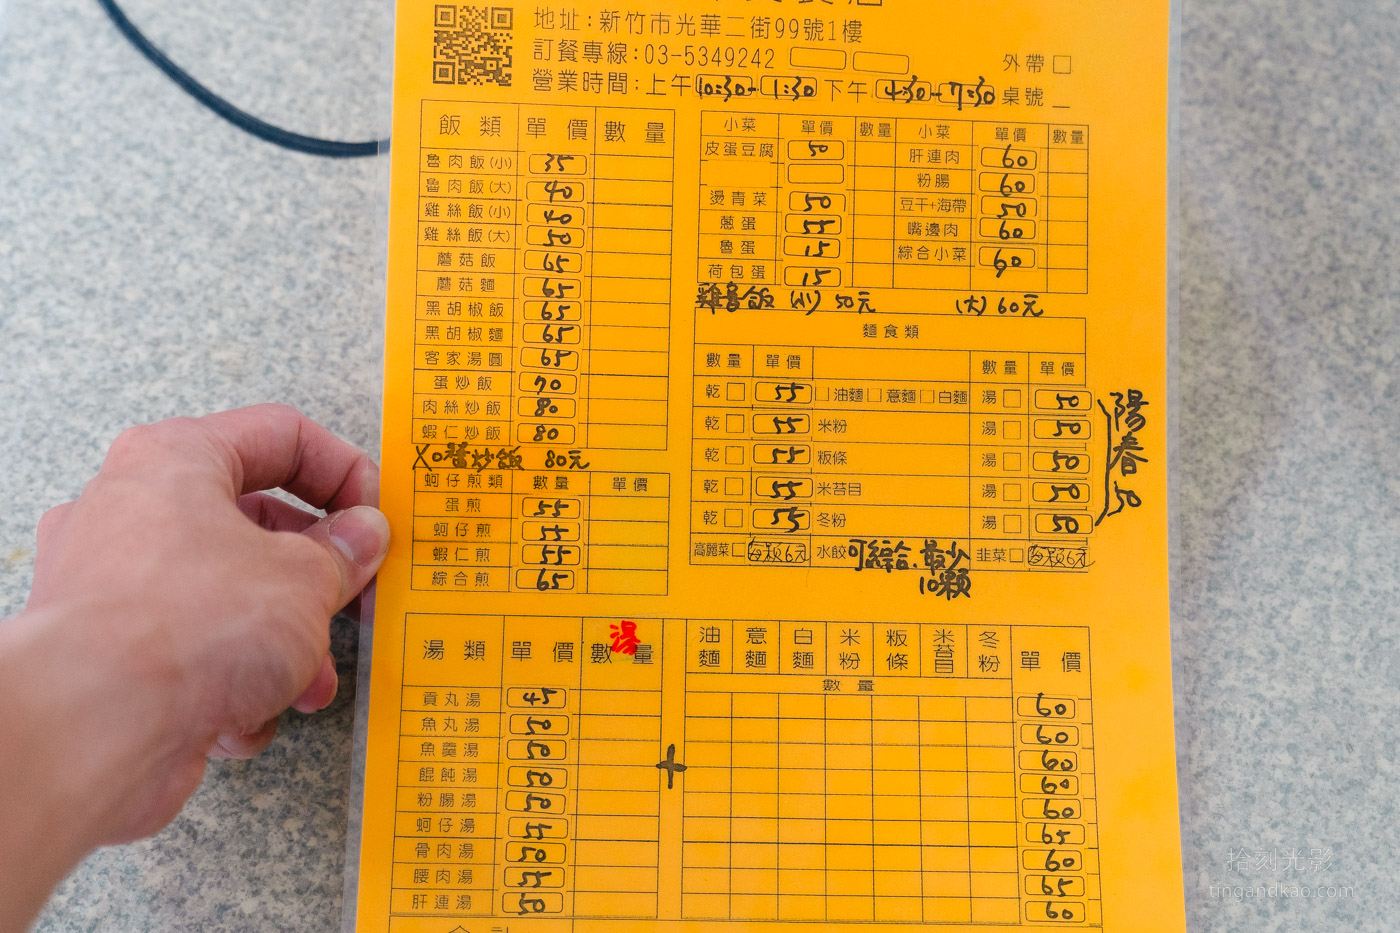 地址:新竹市光華二街99號1樓
訂餐專線:03-5349242
外帶
營業時間:上午10:30-1:30 下午4:30-7:30
桌號
飯類 單價 數量
魯肉飯(小) 35
魯肉飯(大) 40
雞絲飯(小) 40
雞絲飯(大) 50
蘑菇飯 65
蘑菇麵 65
黑胡椒飯 65
黑胡椒麵 65
客家湯圓 65
蛋炒飯 70
肉絲炒飯 80
蝦仁炒飯 80
XO醬炒飯 80元
蚵仔煎類 數量 單價
蛋煎 55
蚵仔煎 55
蝦仁煎 55
綜合煎 65
小菜 單價 數量 小菜 單價 數量
皮蛋豆腐 50 肝連肉 60
粉腸 60
燙青菜 50 豆干+海帶 50
蔥蛋 55 嘴邊肉 60
魯蛋 15 綜合小菜 60
荷包蛋 15
雞魯飯 (小) 50元 (大) 60元
麵食類
數量 單價 數量 單價
乾 55 油麵 意麵 白麵 湯 50
乾 55 米粉 湯 50
乾 55 粄條 湯 50
乾 55 米苔目 湯 50
乾 55 冬粉 湯 50
陽春50
高麗菜 每顆6元 水餃 可綜合.最少10顆 韭菜 每顆6元
湯類 單價 數量
湯
貢丸湯 45
魚丸湯 50
魚羹湯 50
餛飩湯 50
粉腸湯 50
蚵仔湯 55
骨肉湯 50
腰肉湯 55
肝連湯 50
+
油麵 意麵 白麵 米粉 粄條 米苔目 冬粉 單價
數量
60
60
60
60
60
65
60
65
60
拾刻光影
tingandkao.com